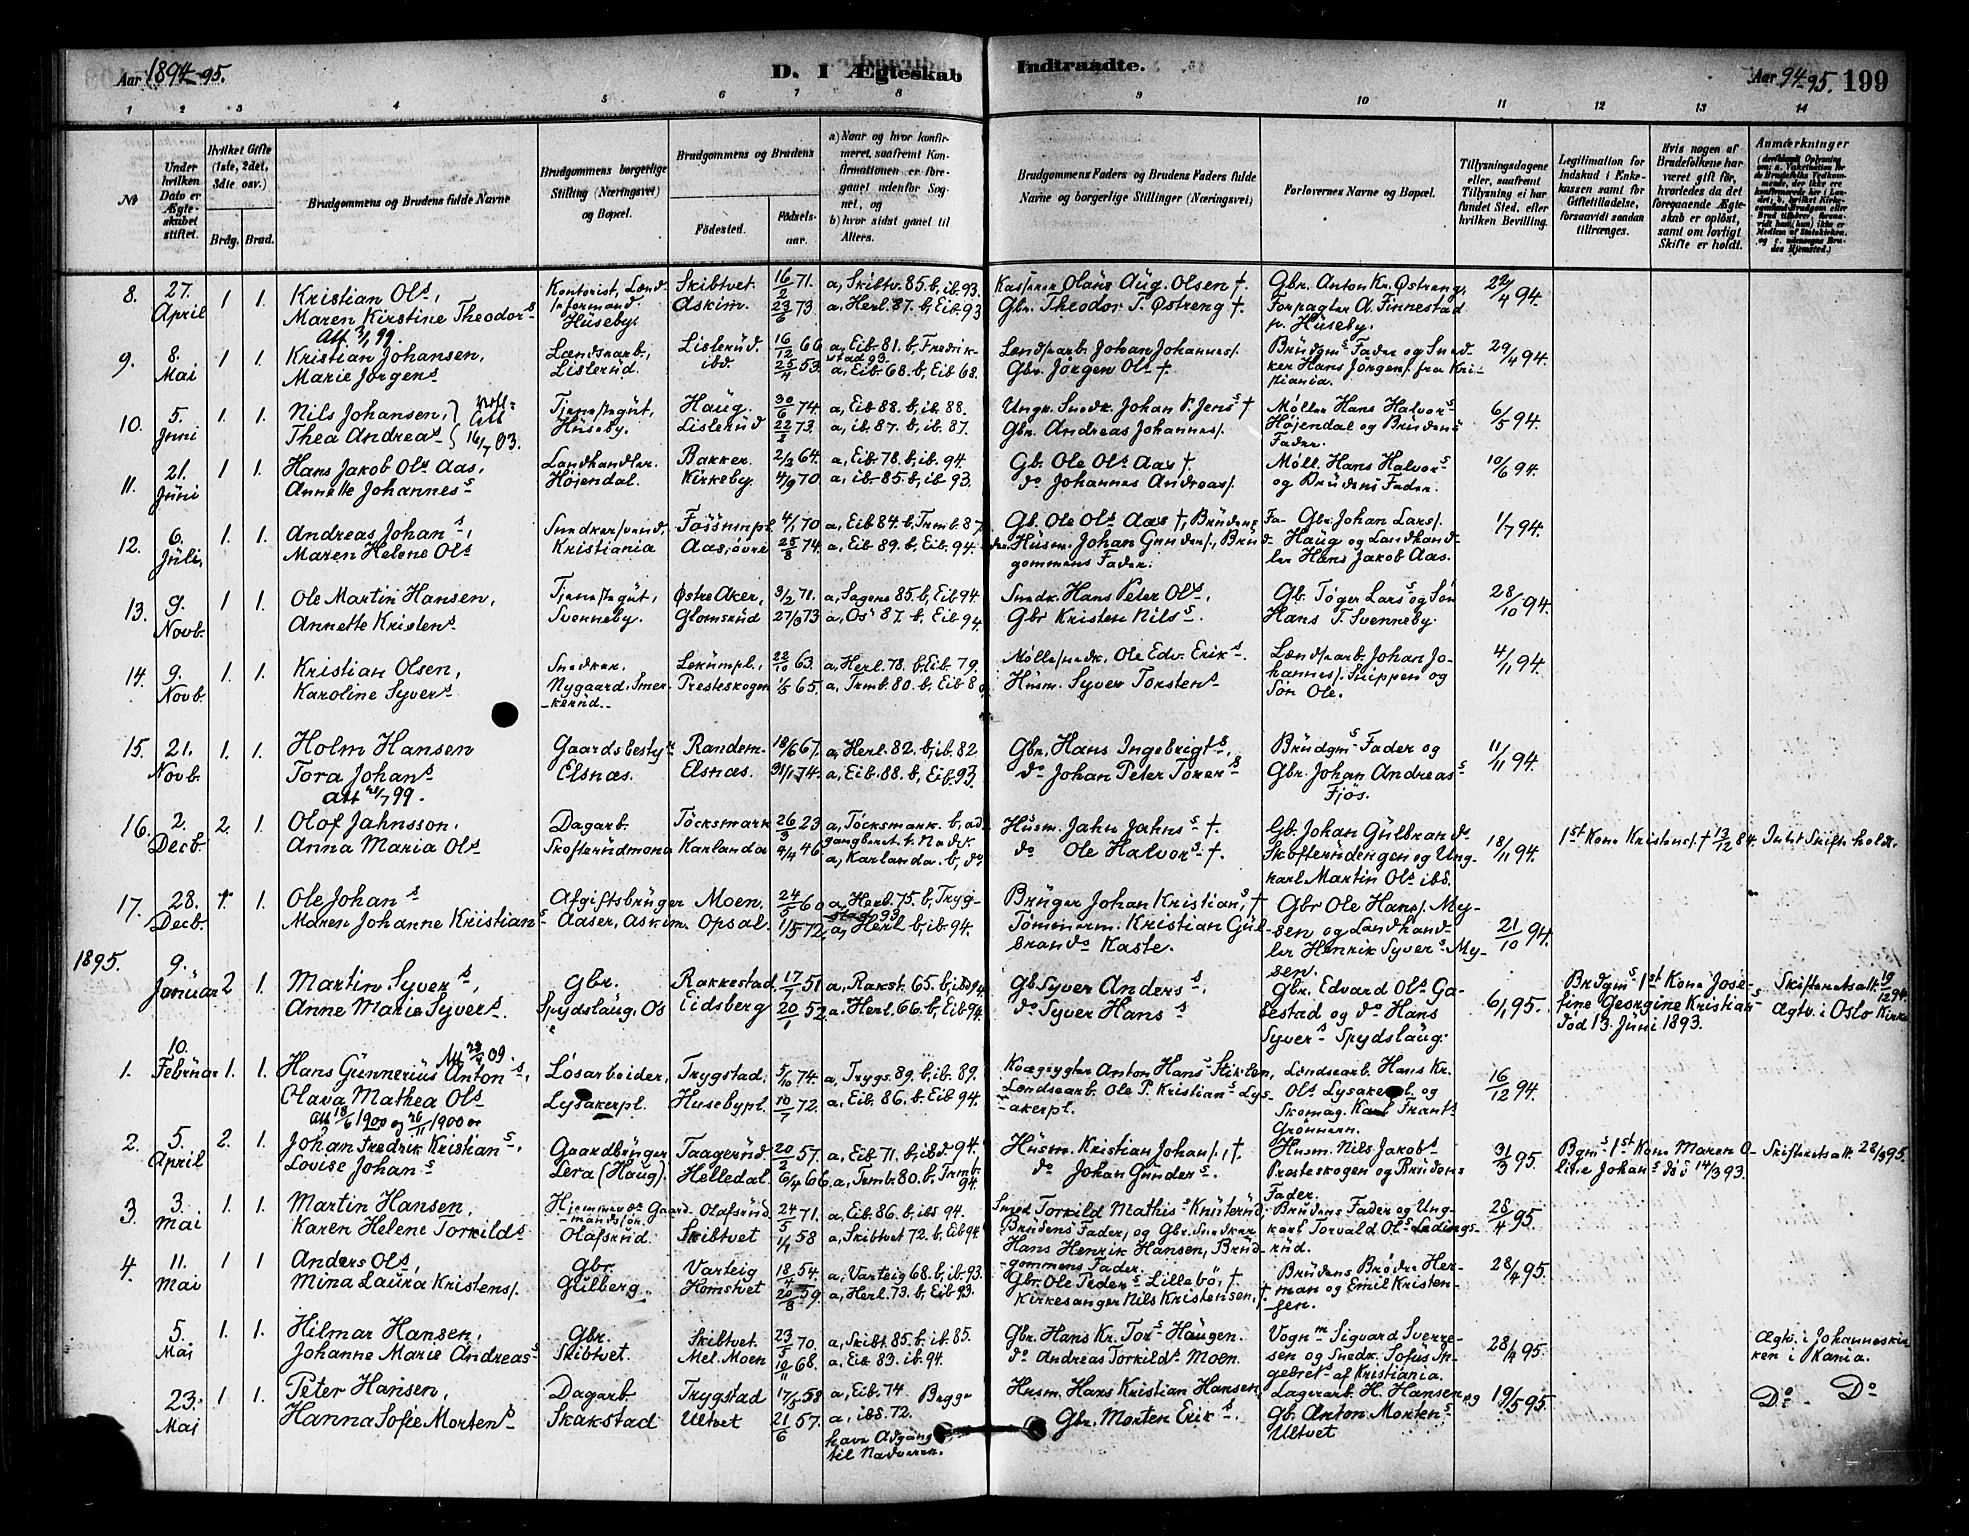 Aar 1894-95.
D. I Ægteskab Indtraadte.
Aar 94-95. 199
1 2 3 4 5 6 7 8 9 10 11 12 13 14
No
Under hvilken Dato er Ægteskabet stiftet.
Hvilket Gifte (1ste, 2det, 3die osv.)
Brdg. Brud.
Brudgommens og Brudens fulde Navne
Brudgommens borgerlige Stilling (Næringsvei) og Bopæl.
Brudgommens og Brudens
Fødested. Fødselsaar.
a) Naar og hvor konfirmeret, saafremt Konfirmationen er foregaaet udenfor Sognet, og
b) hvor sidst gaaet til Alters.
Brudgommens Faders og Brudens Faders fulde Navne og borgerlige Stillinger (Næringsvei)
Forlovernes Navne og Bopæl.
Tillysningsdagene eller, saafremt Tillysning ei har fundet Sted, efter hvilken Bevilling.
Legitimation for Indskud i Enkekassen samt for Giftetilladelse, forsaavidt saadan tiltrænges.
Hvis nogen af Brudefolkene har været gift før, hvorledes da det foregaaende Ægteskab er opløst, samt om lovligt Skifte er holdt.
Anmærkninger
8. 27. April 1 1. Kristian Ols, Kontorist, Lænd. Skibtvet. 16/2 71. a, Skibtv. 85. b, ib. 93. Olaus Aug. Olsen †. Gbr. Anton Kr. Østreng, 22/4 94.
Maren Kirstine Theodors Huseby. Askim. 23/6 73 a. Herl. 87. b, Eib 93 Gbr. Theodor T. Østreng †. Forpagter A. Finnestad
Att 3/1 99. p. Huseby.
9. 8. Mai 1 1. Kristian Johansen, Landsarb., Lislerud. 16/12 66 a, Eib. 81. b, Fredrikstad 93. Landsarb. Johan Johannes. Brudgms Fader og Snedker 29/4 94.
Marie Jørgens Lislerud. ibd. 25/4 53. a. Eib. 68. b, Eib 68. Gbr. Jørgen Ols †. Hans Jørgens. fra Kristiania.
10. 5. Juni 1. 1. Nils Johansen, Tjenestegut, Haug. 30/6 74. a, Eib 88. b, ib. 88. Ungk. Snedk. Johan P. Jens † Møller Hans Halvors 6/5 94.
Thea Andreas Att 16/7 03. Huseby. Lislerud 22/2 73. a, ib. 87. b, ib. 87. Gbr. Andreas Johannes. Højendal og Brudens Fader.
11. 21. Juni 1 1. Hans Jakob Ols Aas, Landhandler. Bakker. 2/2 64. a, Eib. 78. b, ib. 94. Gb. Ole Ols Aas †. Møll. Hans Halvors 10/6 94.
Annette Johannes Højendal. Kirkeby. 4/9 70 a, ib. 85. b, ib. 93. do Johannes Andreas. og Brudens Fader.
12. 6. Juli. 1. 1. Andreas Johans, Snedkersvend, Fossumpl. 4/1 70 a, Eib 84. b, Trmb. 87. Gb. Ole Ols Aas †, Brudens Fa- Gbr. Johan Lars. 1/7 94.
Maren Helene Ols Kristiania Aas, øvre 25/8 74. a, Eib. 89. b, Eib. 94. der. Husm. Johan Gunders., Brudgommens Fader. Haug og Landhandler Hans Jakob Aas.
13. 9. Novb. 1 1. Ole Martin Hansen, Tjenestegut, Østre Aker, 3/2 71. a, Sagene 85. b, Eib 94. Snedk. Hans Peter Ols, Gb. Tøger Lars og Søn 28/10 94.
Annette Kristens Svenneby. Glomsrud 27/9 73 a, Os 87. b, Eib 94. Gbr Kristen Nils. Hans T. Svenneby.
14. 9. Novb. 1. 1. Kristian Olsen, Snedker. Lekumpl., 22/10 63. a, Herl. 78. b, Eib. 79. Møllesnedk. Ole Edv. Eriks. Landsarb. Johan Johannes. Skippen og 4/11 94.
Karoline Syvers Nygaard, Smerkerud. Presteskogen 1/5 65. a, Trmb. 80. b, Eib Husm. Syver Torstens Søn Ole.
15. 21. Novb. 1. 1. Holm Hansen Gaardsbestyr Randem. 18/6 67. a, Herl. 82. b, ib. 82 Gbr. Hans Ingebrigts, Brudgms Fader og 11/11 94.
Tora Johans Elsnæs. Elsnæs. 31/1 74. a, Eib. 88. b, Eib. 93. do Johan Peter Torers Gbr. Johan Andreas
Att 21/7 99. Fjøs.
16. 2. Decb. 2. 1. Olof Jahnsson, Dagarb. Töcksmark 26/3 23 a, Töcksmark. b, adgangberet. t. Nadv. Husm. Jahn Jahns †. Gb. Johan Gulbrands 18/11 94. 1st Kone Kristens. † 13/12 84. Intet Skifte holdt.
Anna Maria Ols Skofterudmona Karlanda 9/4 46 a, Karlanda. b, do do Ole Halvors †. Skofterudengen og Ungkarl Martin Ols ibd.
17. 28. Decb. 1. 1. Ole Johans Afgiftsbruger Moen. 24/5 60 a, Herl. 75. b, Trygstad 93 Bruger Johan Kristian, † Gbr Ole Hans. Mysen og Landhandler Henrik Syvers Mysen. 21/10 94.
Maren Johanne Kristians Aaser, Askim. Opsal. 1/5 72. a, Herl b, ib. 94. Tømmerm. Kristian Gulbrands Kaste.
1895. 9. Januar 2 1. Martin Syvers, Gbr. Rakkestad 17/7 51 a. Rakst. 65. b, ibd 94. Gb Syver Anders, Gbr. Edvard Ols Gabestad og do Hans Syvers Spydslaug. 6/1 95. Brdgms 1st Kone Josefine Georgine Kristians død 13. Juni 1893. Skifteretsatt. 19/12 94. Agtv. i Oslo Kirke
Anne Marie Syvers. Spydslaug, Os Eidsberg 20/1 52. a. Herl. 66. b, Eib 94. do Syver Hans
1. 10. Februar 1. 1. Att 09. Hans Gunnerius Antons, Løsarbeider, Trygstad. 5/10 74. a, Trygs. 89. b, ib. 89. Kvægrygter Anton Hans Stiklen, Landsarb. Hans Kr. Ols Lysakerpl. og Skomag. Karl Frants Grønnern. 16/12 94.
Olava Mathea Ols Lysakerpl. Husebypl. 10/7 72. a, Eib. 86. b. Eib 94. Landsarb. Ole P. Kristians Lysakerpl.
Att 18/6 1900 og 26/11 1900
2. 5. April 2. 1. Johan Fredrik Kristians, Gaardbruger Taagerud. 20/2 57. a, Eib 71. b, ibd. 94. Husm. Kristian Johan., † Husm. Nils Jakobs Presteskogen og Brudens Fader. 31/3 95. Bgms 1st Kone Maren Oline Johans død 14/3 93. Skifteretsatt. 28/3 95.
Lovise Johans Lera (Haug). Helledal. 6/4 66. a, Trmb. 80. b, Trmb. 94. do Johan Gunders.
3. 3. Mai 1. 1. Martin Hansen, Hjemmevær. Gaardmandssøn. Olafsrud 24/5 71. a, Eib. 86. b, ibd 94. Smed Torkild Mathis Knuterud, Brudens Fader, og Gbr. Snedker Hans Henrik Hansen, Brudgommens Fader. Brudens Fader og Ungkarl Torvald Ols Ledingsrud. 28/4 95.
Karen Helene Torkilds Olafsrud. Skibtvet 1/1 58 a, Skibtvet 72. b, Eib 94.
4. 11. Mai 1 1 Anders Ols, Gbr. Varteig 18/4 54. a, Varteig 68. b, ib. 93. Gbr. Ole Peders Lillebö, † Brudens Brødre Herman og Emil Kristensen. 28/4 95.
Mina Laura Kristens. Gulberg. Homstvet 20/8 59. a, Herl. 73. b, Eib 93. Kirkesanger Nils Kristensen, †.
5. Mai 1. 1. Hilmar Hansen, Gbr. Skibtvet. 23/5 70. a, Skibt. 85. b, ib. 85. Gbr. Hans Kr. Tors Haugen. Vognm Sigvard Sverresen og Snedk. Sofus Ingebrets af Kristiania. 28/4 95. Ægtv. i Johanneskirken i Kania.
Johanne Marie Andreas Skibtvet. Mel. Moen 10/11 68. a, Eib 83. ib. 94. do Andreas Torkilds Moen.
23. Mai 1 1. Peter Hansen, Dagarb. Trygstad 17/5 58 a, Eib. 74 Begge Husm. Hans Kristian Hansen, Lagerarb. H. Hansen og Gb. Anton Mortens Ultvet 19/5 95. Do. Do
Hanna Sofie Mortens Skakstad Ultvet 21/6 57. a, ibd. 72. have Adgang til Nadveren. Gbr. Morten Eriks.